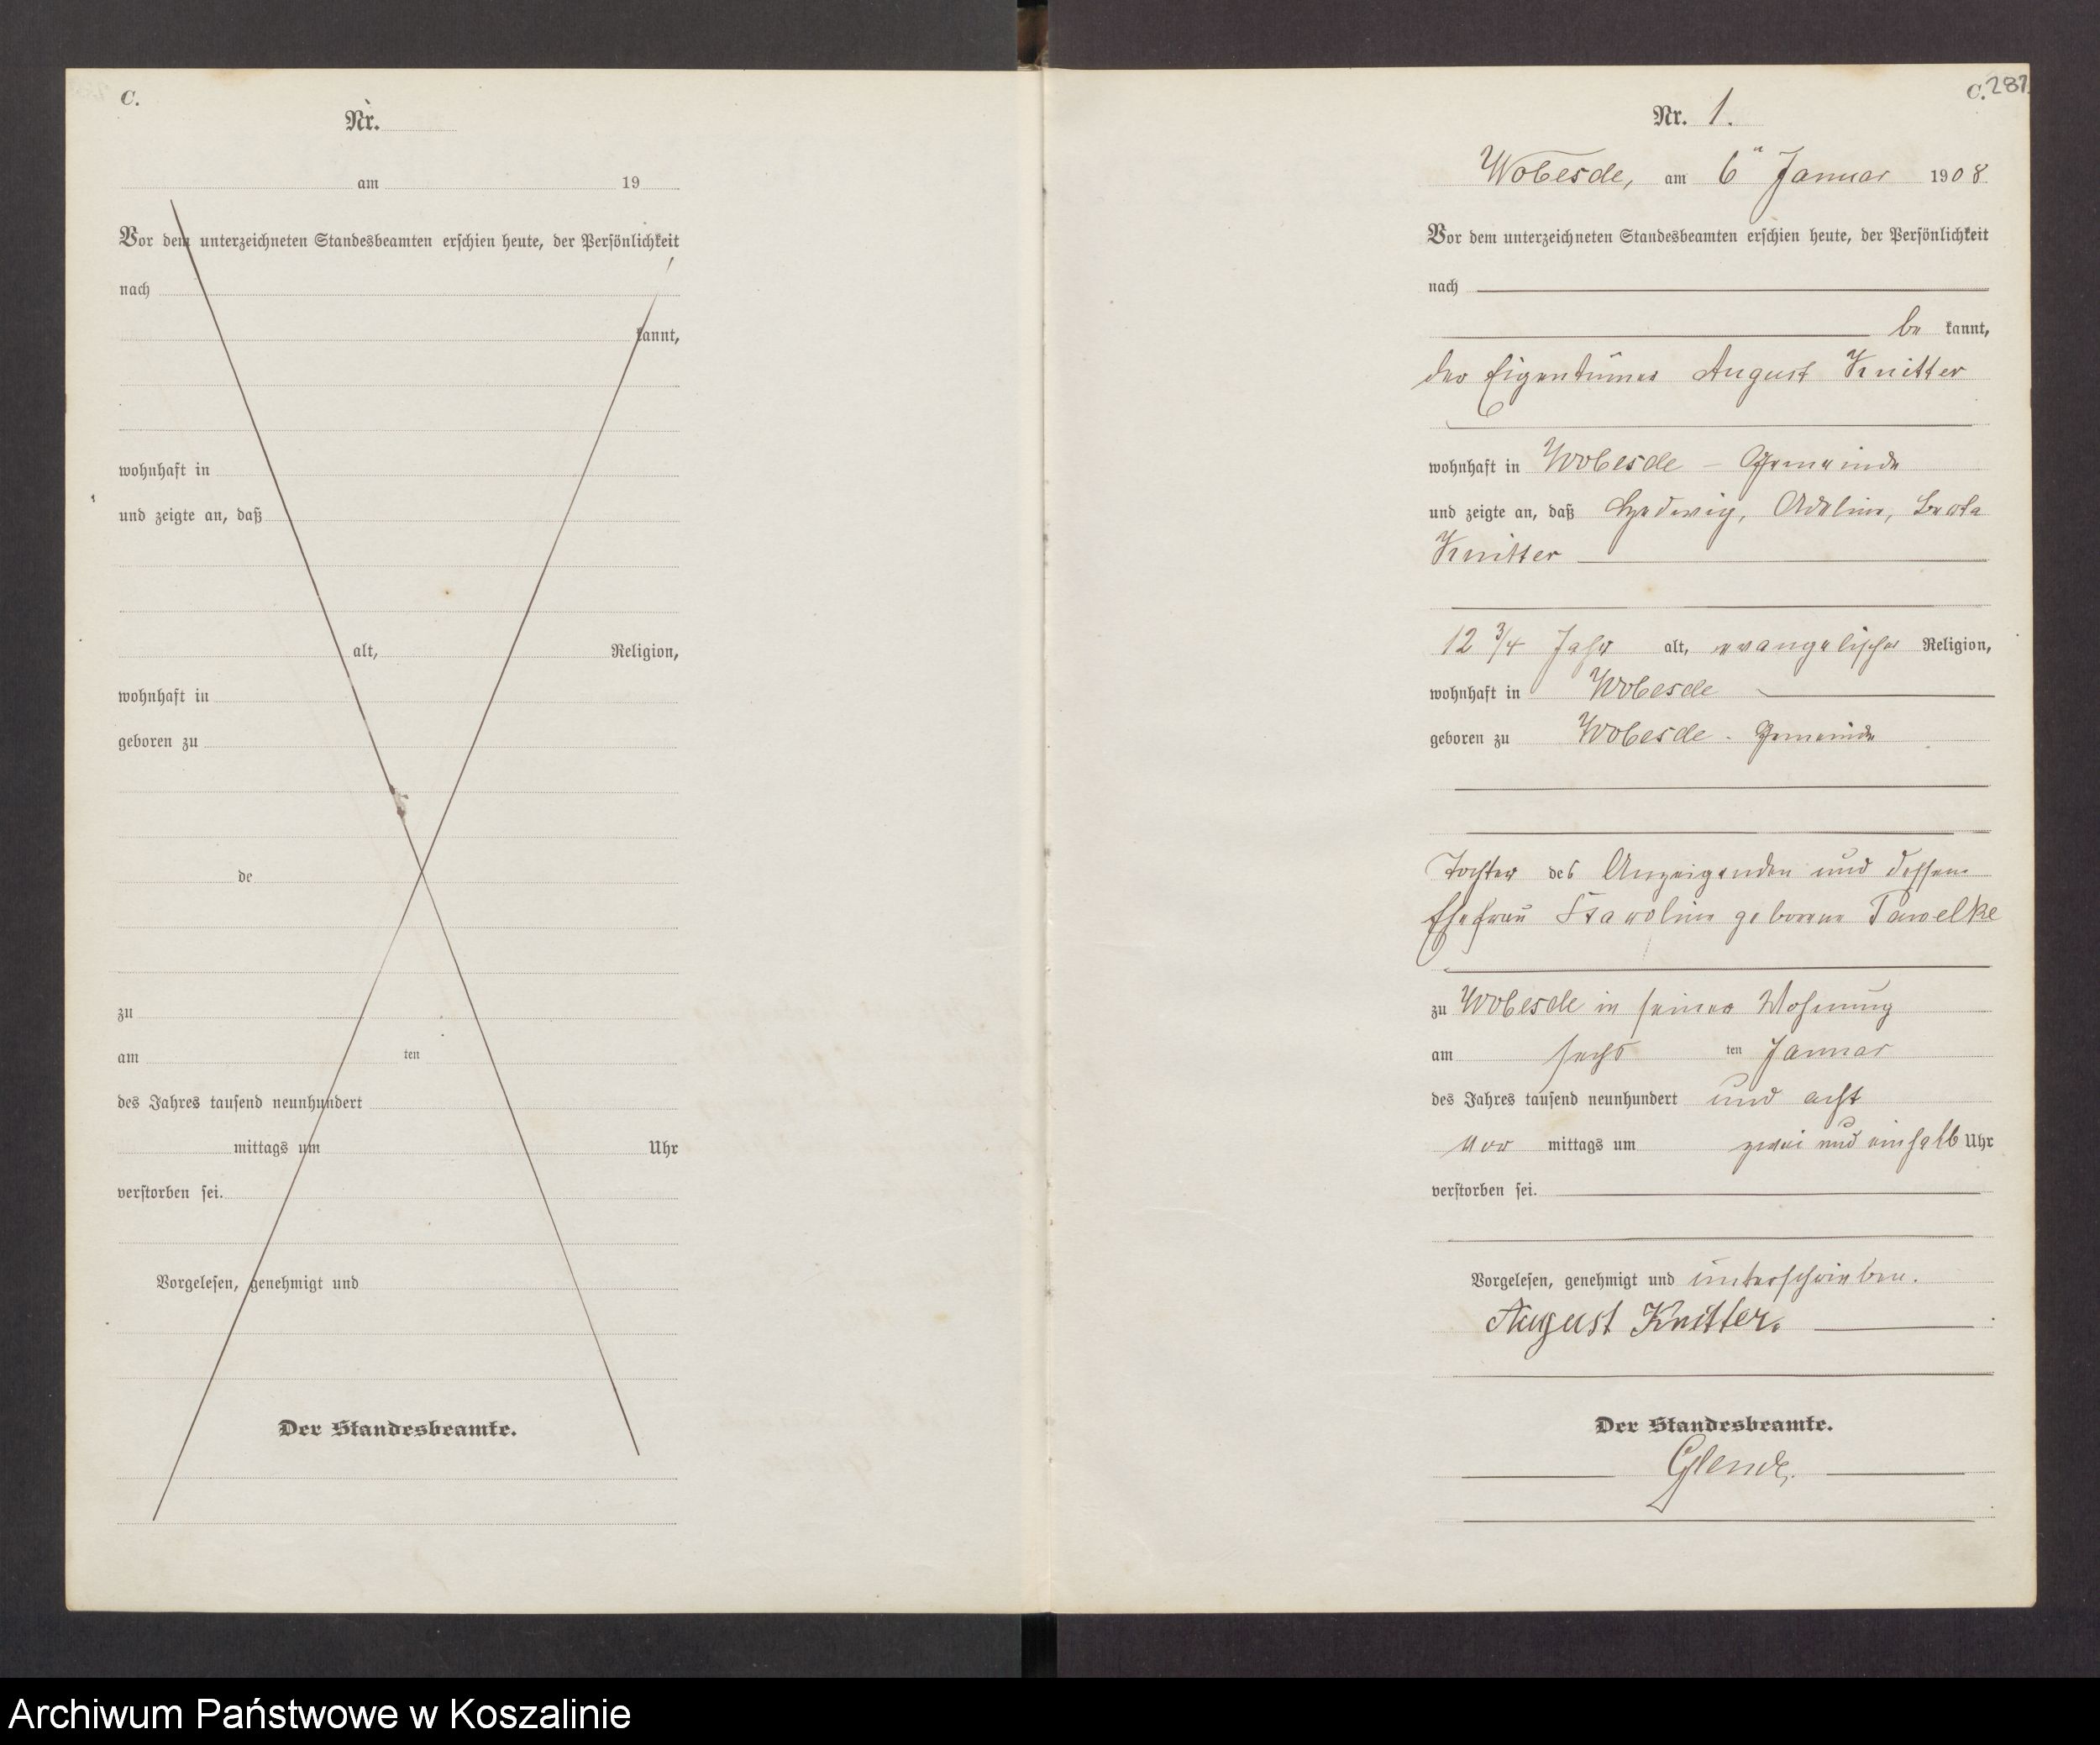 C.
Nr.
am 19
Vor dem unterzeichneten Standesbeamten erschien heute, der Persönlichkeit
nach
kannt,
wohnhaft in
und zeigte an, daß
alt, Religion,
wohnhaft in
geboren zu
de
zu
am ten
des Jahres tausend neunhundert
mittags um Uhr
verstorben sei.
Vorgelesen, genehmigt und
Der Standesbeamte.
C. 287.
Nr. 1.
Wobesde, am 6ⁿ Januar 1908
Vor dem unterzeichneten Standesbeamten erschien heute, der Persönlichkeit
nach
be kannt,
der Eigentümer August Knitter
wohnhaft in Wobesde - Gemeinde
und zeigte an, daß Hedwig, Adeline, Berta
Knitter
12 3/4 Jahr alt, evangelischer Religion,
wohnhaft in Wobesde
geboren zu Wobesde - Gemeinde
Tochter des Anzeigenden und dessen
Ehefrau Karoline geborene Pawelke
zu Wobesde in seiner Wohnung
am sechs ten Januar
des Jahres tausend neunhundert und acht
vor mittags um zwei und einhalb Uhr
verstorben sei.
Vorgelesen, genehmigt und unterschrieben.
August Knitter.
Der Standesbeamte.
Glende.
Archiwum Państwowe w Koszalinie